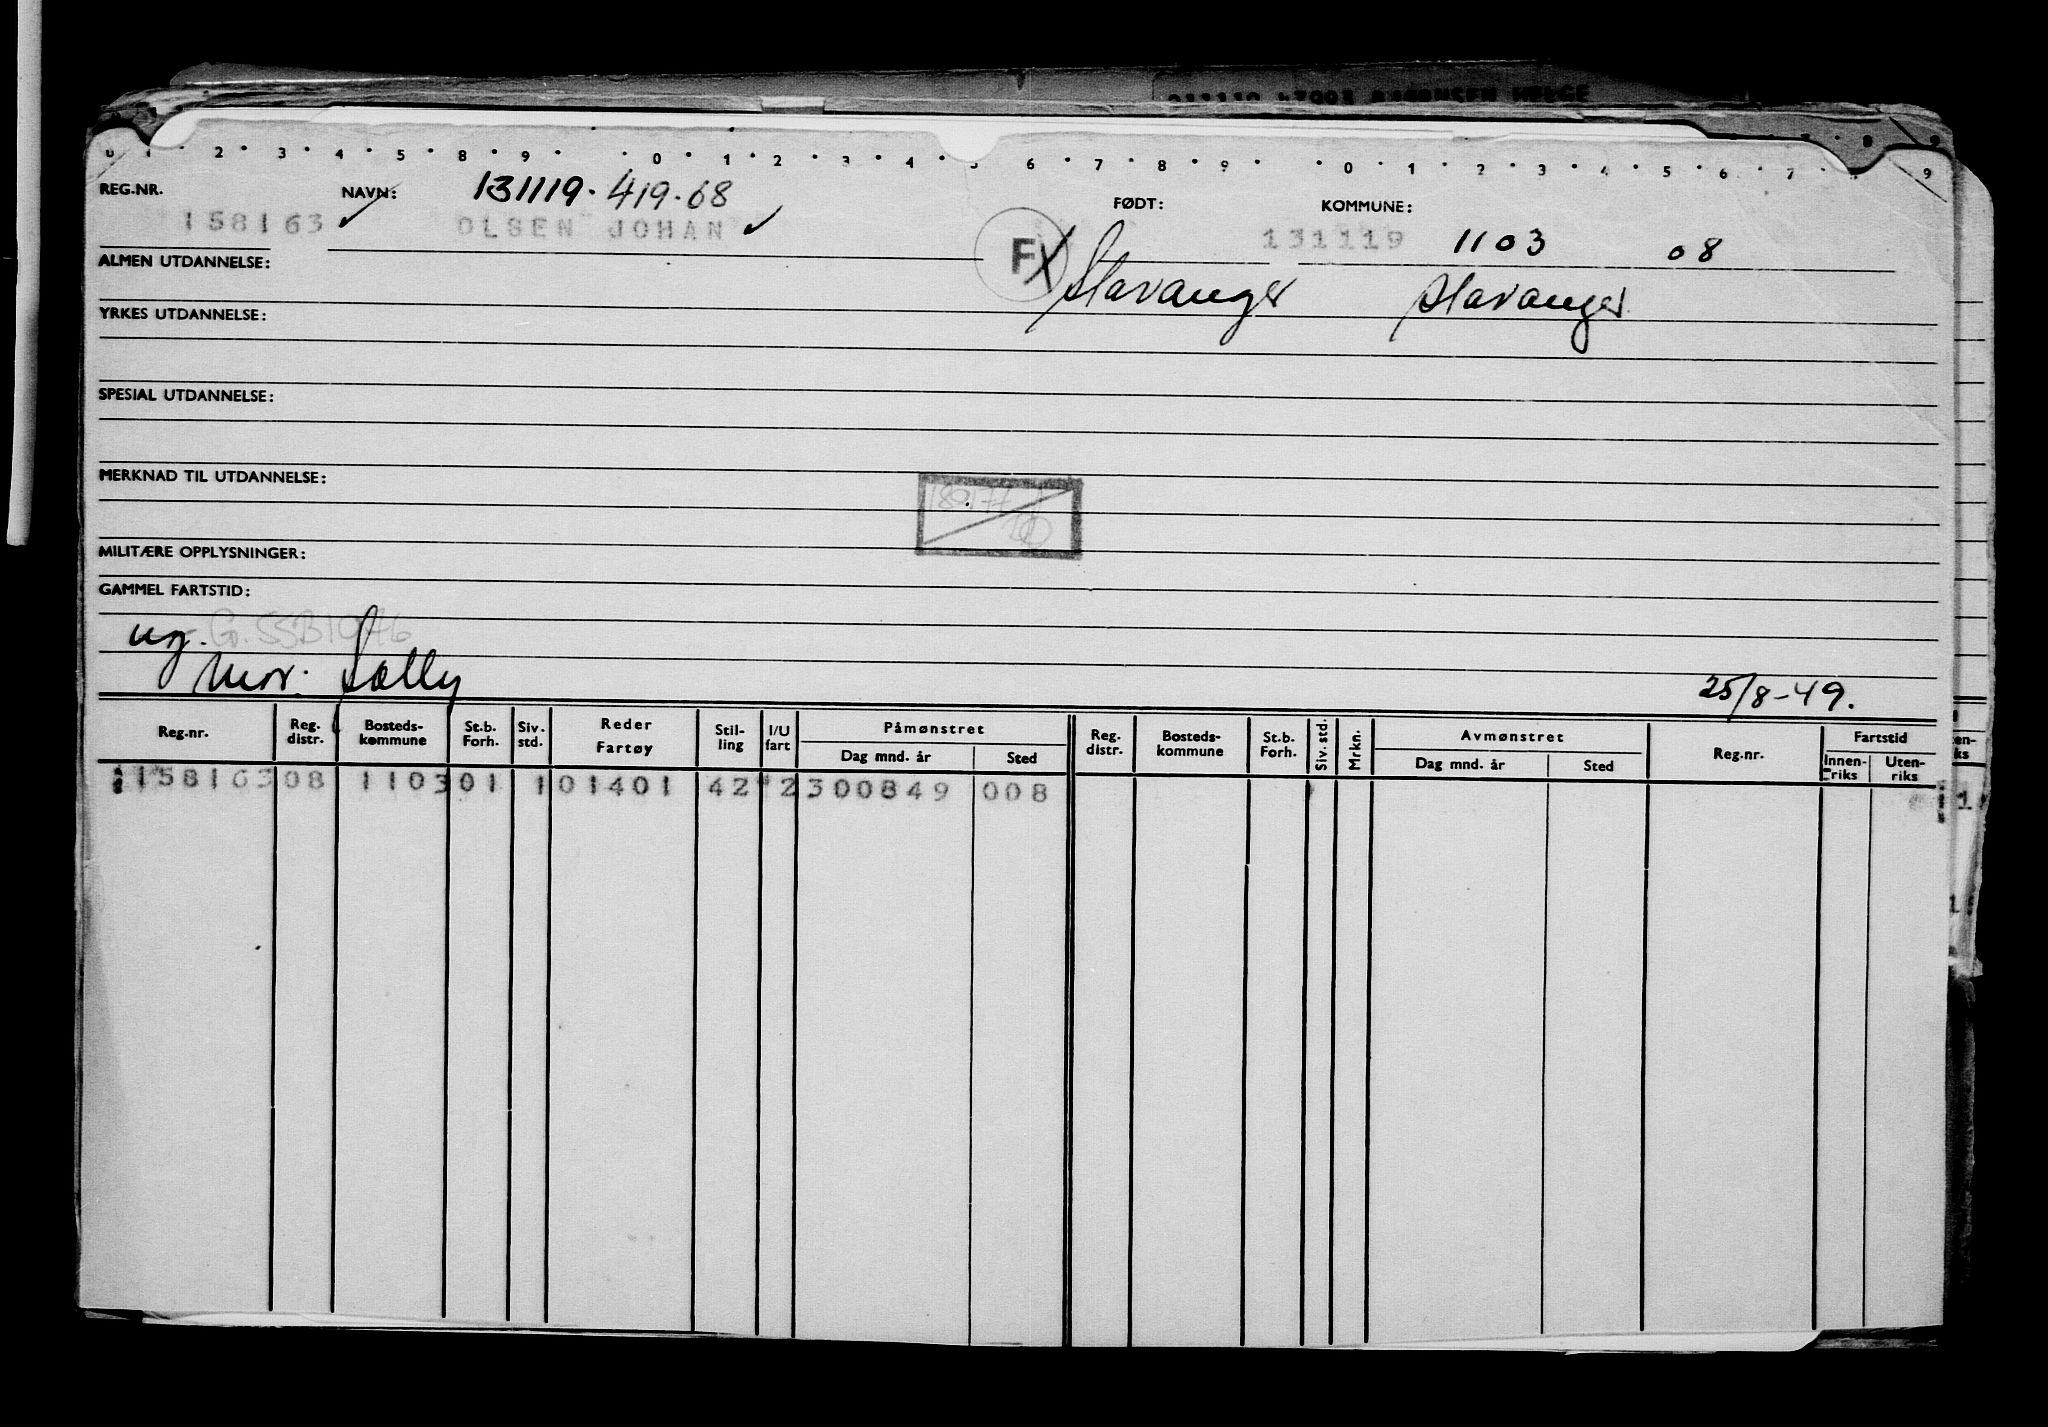 0 1 2 3 4 5 8 9 0 1 2 3 4 5 6 7 8 9 0 1 2 3 4 5 6 7 8 9
REG.NR. NAVN: 131119. 419.68 FØDT: KOMMUNE:
158163 OLSEN JOHAN FX 131119 1103 08
ALMEN UTDANNELSE: Stavanger Stavanger
YRKES UTDANNELSE:
SPESIAL UTDANNELSE:
MERKNAD TIL UTDANNELSE:
MILITÆRE OPPLYSNINGER:
GAMMEL FARTSTID:
ug. G. SSB 1976
Mor: Sally 25/8-49.
Reg.nr. Reg. distr. Bosteds-kommune St.b. Forh. Siv. std. Reder Fartøy Stil-ling I/U fart Påmønstret Dag mnd. år Sted Reg. distr. Bosteds-kommune St.b. Forh. Siv. std. Mrkn. Avmønstret Dag mnd. år Sted Reg.nr. Fartstid Innen-riks Uten-riks
158163 08 1103 01 1 01401 42 2 300849 008